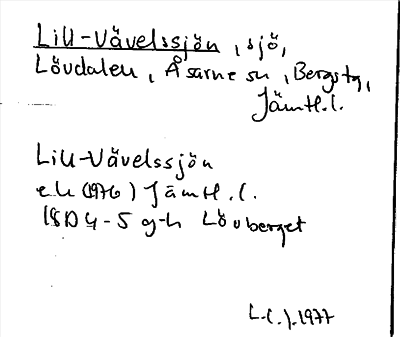 Lill-Vävelssjön, sjö,
Lövdalen, Åsarne sn, Bergs tg,
Jämtl. l.
Lill-Vävelssjön
ek (1976) Jämtl. l.
18D 4-5 g-h Lövberget
L.(.).1977